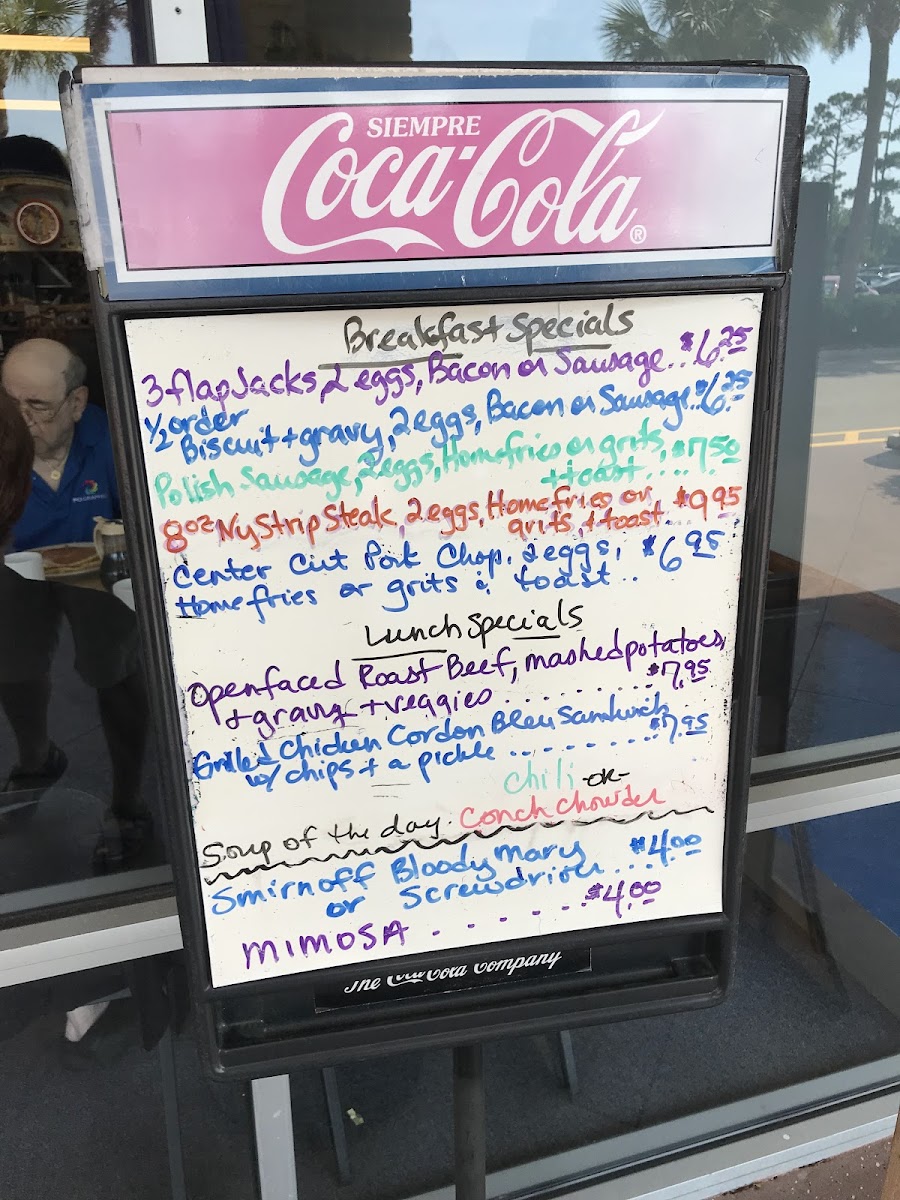 SIEMPRE
Coca-Cola®
Breakfast Specials
3 flap Jacks, 2 eggs, Bacon or Sausage.. $6.25
1/2 order
Biscuit + gravy, 2 eggs, Bacon or Sausage.. $6.25
Polish Sausage, 2 eggs, Home fries or grits,
+ toast.... $7.50
8oz Ny Strip Steak, 2 eggs, Home fries or
grits, + toast. $9.95
Center Cut Pork Chop, 2 eggs, $6.95
Home fries or grits & toast..
Lunch Specials
Openfaced Roast Beef, mashed potatoes,
+ gravy + veggies ......... $7.95
Grilled Chicken Cordon Bleu Sandwich
w/ chips + a pickle ......... $7.95
Chili -or-
Soup of the day. Conch Chowder
Smirnoff Bloody Mary
or Screwdriver.... $4.00
MIMOSA ...... $4.00
The Coca-Cola Company